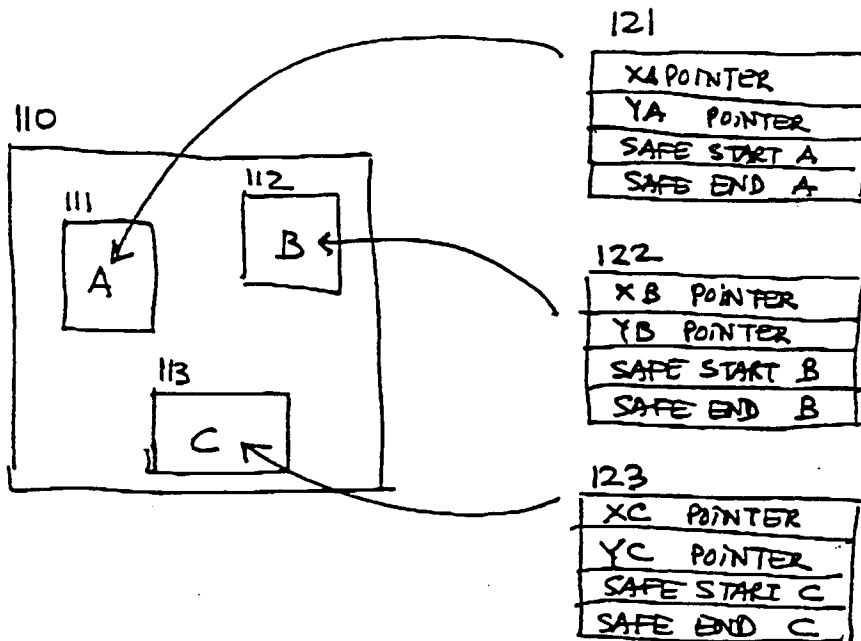 110
111
A
112
B
113
C
121
XA POINTER
YA POINTER
SAFE START A
SAFE END A
122
XB POINTER
YB POINTER
SAFE START B
SAFE END B
123
XC POINTER
YC POINTER
SAFE START C
SAFE END C